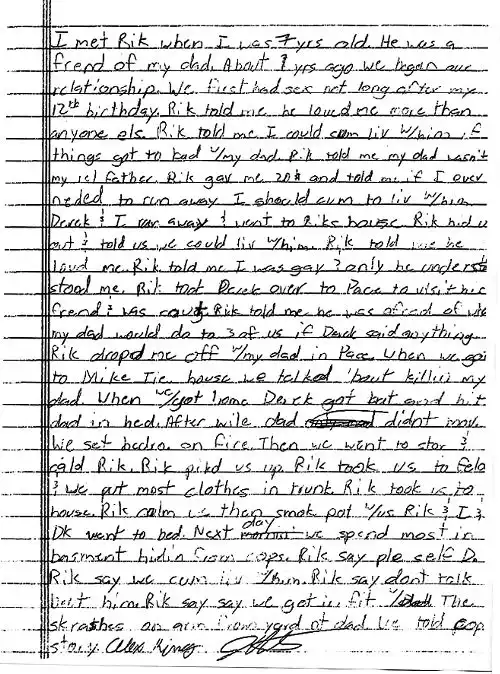 I met Rik when I was 7 yrs old. He was a
frend of my dad. About yrs ago we began our
relationship. We first had sex not long after my
12th birthday. Rik told me he loved me more than
anyone els. Rik told me I could cum liv w/him if
things got to bad w/my dad. Rik told me my dad wasn't
my rel father. Rik gav me 20$ and told me if I ever
neded to run away I should cum to liv w/him
Derek & I ran away & went to Riks house. Rik hid u
out & told us we could liv w/him. Rik told me he
lovd me. Rik told me I was gay & only he underst
stood me. Rik toot Derek over to Pace to visit his
frend & was caut. Rik told me he was afread of wha
my dad would do to 3 of us if Derek said anything.
Rik droped me off w/my dad in Pace. When we got
to Mike Tic house we talked 'bout killin my
dad. When we/got home Derek got bat and hit
dad in hed. After wile dad didnt mov.
We set bedrm on fire. Then we went to stor &
cald Rik. Rik pikd us up. Rik took us to
& we put most clothes in trunk. Rik took us to
house. Rik calm us then smok pot w/us Rik & I &
Dk went to bed. Next day we spend most in
basment hidin from cops. Rik say ple self D.
Rik say we cum liv w/him. Rik say dont talk
but him. Rik say say we got in fit w/dad The
skrathes on arm from yard of dad We told cop
story. Alex King